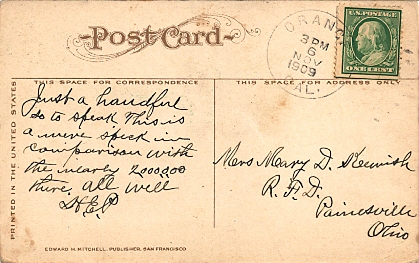 Post Card
THIS SPACE FOR CORRESPONDENCE
THIS SPACE FOR ADDRESS ONLY
ORANG
3 PM
6
NOV
1909
AL.
U.S. POSTAGE
ONE CENT
Just a handful
so to speak This is
a mere speck in
comparison with
the nearly 2000000
there, all well
Mrs Mary D.
R. F. D.
Painesville
Ohio
PRINTED IN THE UNITED STATES
EDWARD H. MITCHELL, PUBLISHER, SAN FRANCISCO